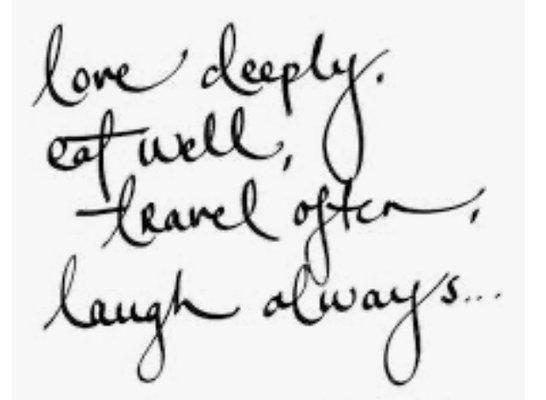 love deeply.
eat well,
travel often,
laugh always...